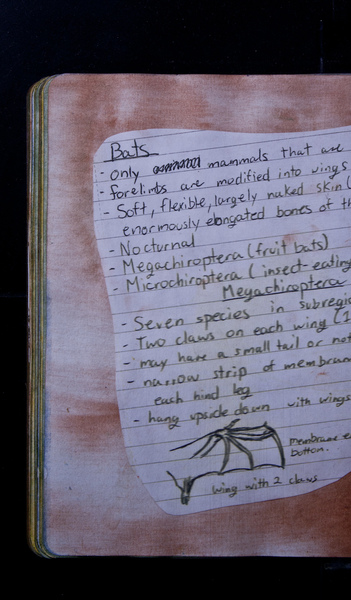 Bats
- Only mammals that are
- forelimbs are modified into wings
- Soft, flexible, largely naked skin (
enormously elongated bones of th
- Nocturnal
- Megachiroptera (fruit bats)
- Microchiroptera (insect-eating
Megachiroptera
- Seven species in subregio
- Two claws on each wing (1
- may have a small tail or not
- narrow strip of membran
each hind leg
- hang upside down with wings
membrane e
button.
wing with 2 claws